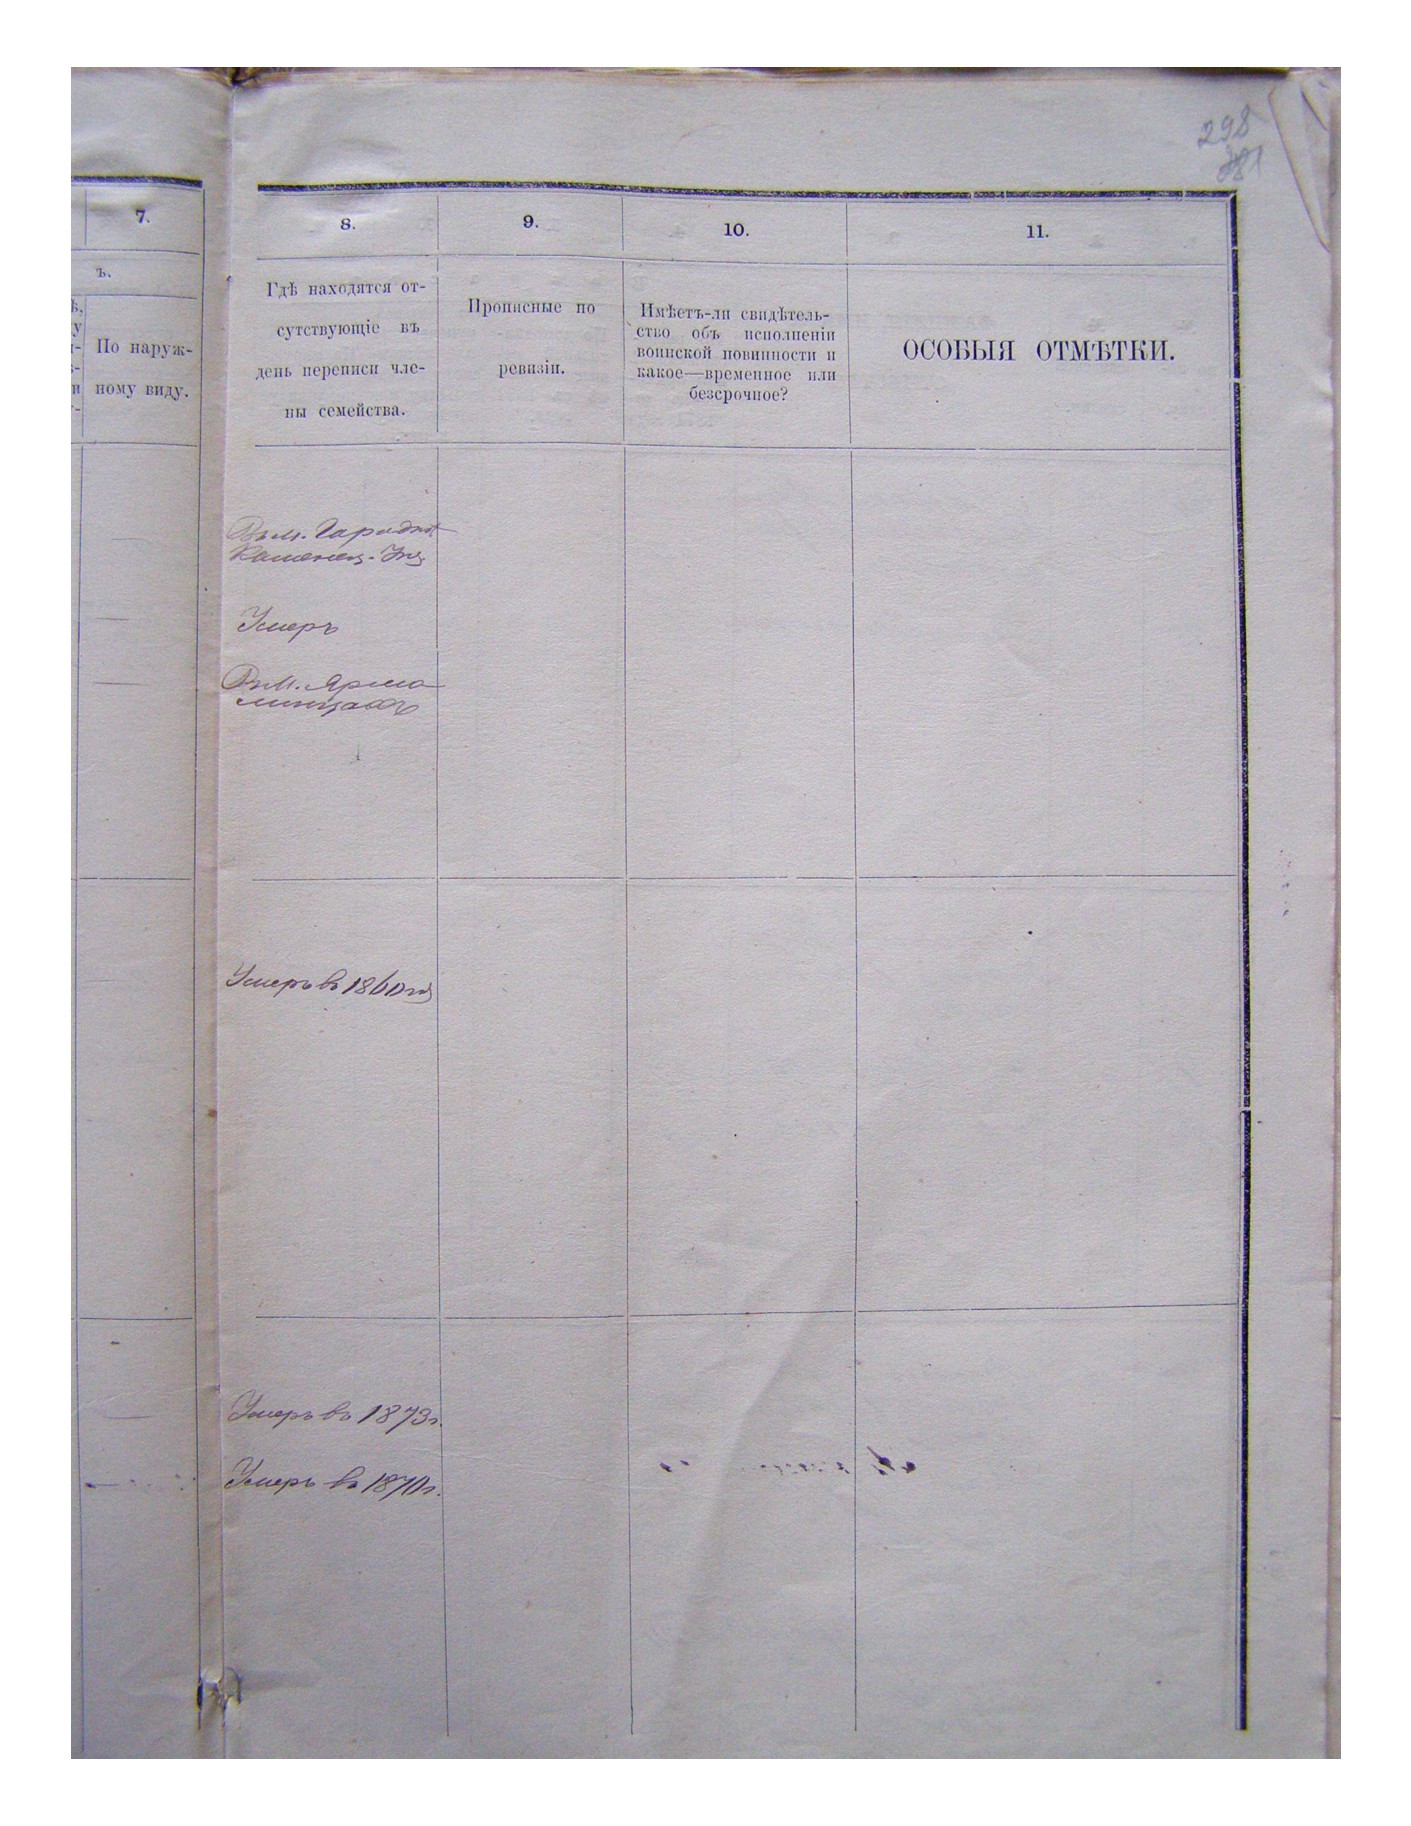 298
381
7.
8.
9.
10.
11.
ъ.
По наруж-
ному виду.
Гдѣ находятся от-
сутствующіе въ
день переписи чле-
ны семейства.
Прописные по
ревизіи.
Имѣетъ-ли свидѣтель-
ство объ исполненіи
воинской повинности и
какое—временное или
безсрочное?
ОСОБЫЯ ОТМѢТКИ.
Въ м. Городкѣ
Каменец.
Умеръ
Въ м. Ярмо
линцахъ
Умеръ въ 1860
Умеръ въ 1873 г.
Умеръ въ 1870 г.